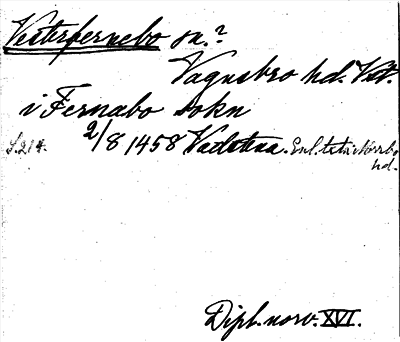 Vesterfernebo sn.?
Vagnsbro hd. Vstl.
i Fernabo sokn
S. 214. 2/8 1458 Vadstena. Enl. texten Norrbo
hd.
Dipl. norv. XVI.